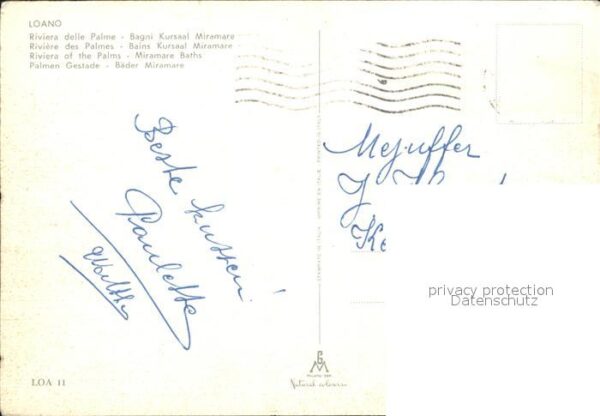 LOANO
Riviera delle Palme - Bagni Kursaal Miramare
Rivière des Palmes - Bains Kursaal Miramare
Riviera of the Palms - Miramare Baths
Palmen Gestade - Bäder Miramare
Beste kussen!
Paulette
Mejuffer
privacy protection
Datenschutz
LOA 11